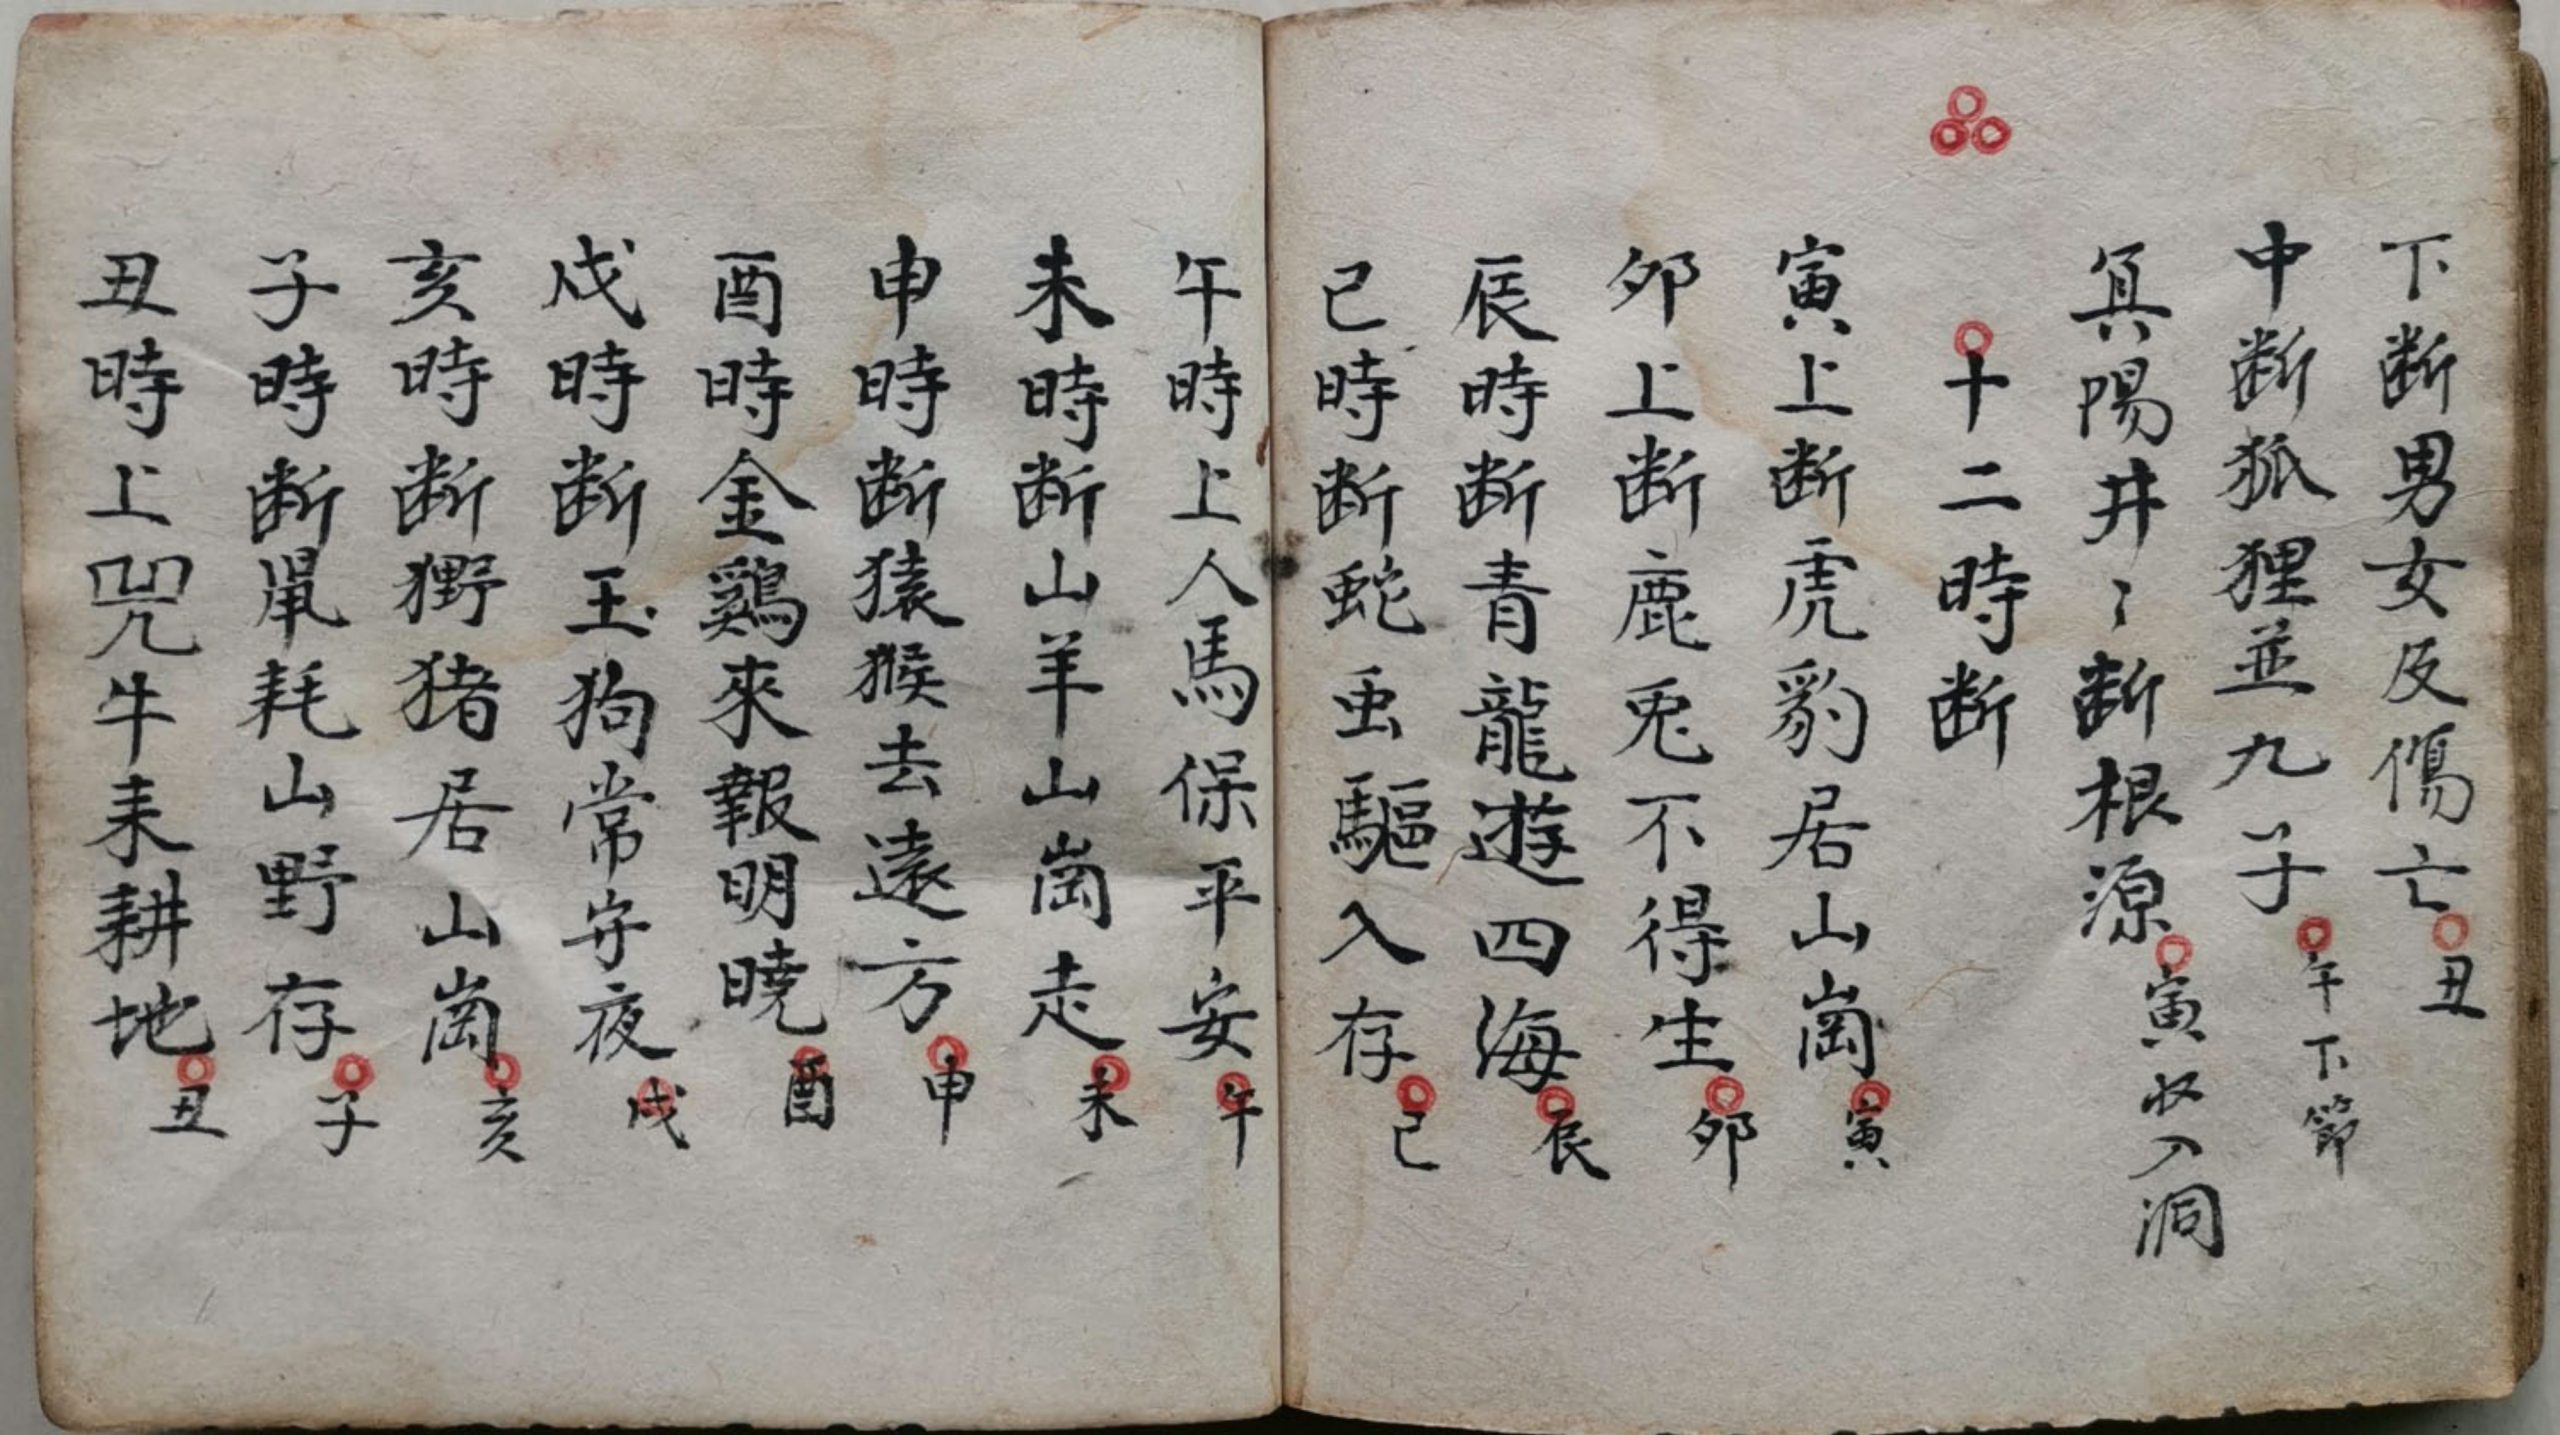 下断男女反傷亡丑
中断狐狸並九子午下節
冥陽井〻断根源寅收入洞
十二時断
寅上断虎豹居山崗寅
夘上断鹿兎不得生夘
辰時断青龍遊四海辰
己時断蛇虫驅入存己
午時上人馬保平安午
未時断山羊山崗走未
申時断猿猴去遠方申
酉時金鷄來報明曉酉
戍時断玉狗常守夜戍
亥時断猪居山崗亥
子時断耗山野存子
丑時上咒牛耒耕地丑